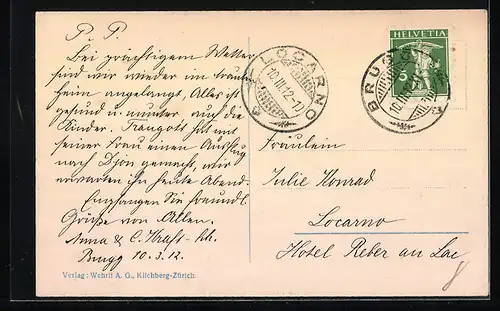 P. P.
Bei prächtigem Wetter
sind wir wieder im trauten
heim angelangt, Alles ist
gesund u. munter auch die
Kinder. Traugott hat mit
seiner Frau einen Ausflug
nach Dijon gemacht, wir
erwarten ihn heute Abend.
Empfangen Sie freundl.
Grüße von Allen.
Anna & C. Kraft
Brugg 10.3.12.
Verlag: Wehrli A. G., Kilchberg-Zürich.
LOCARNO
10.III.12
BRUGG
10.III.12
HELVETIA
5
Fräulein
Julie Konrad
Locarno
Hotel Reber au Lac